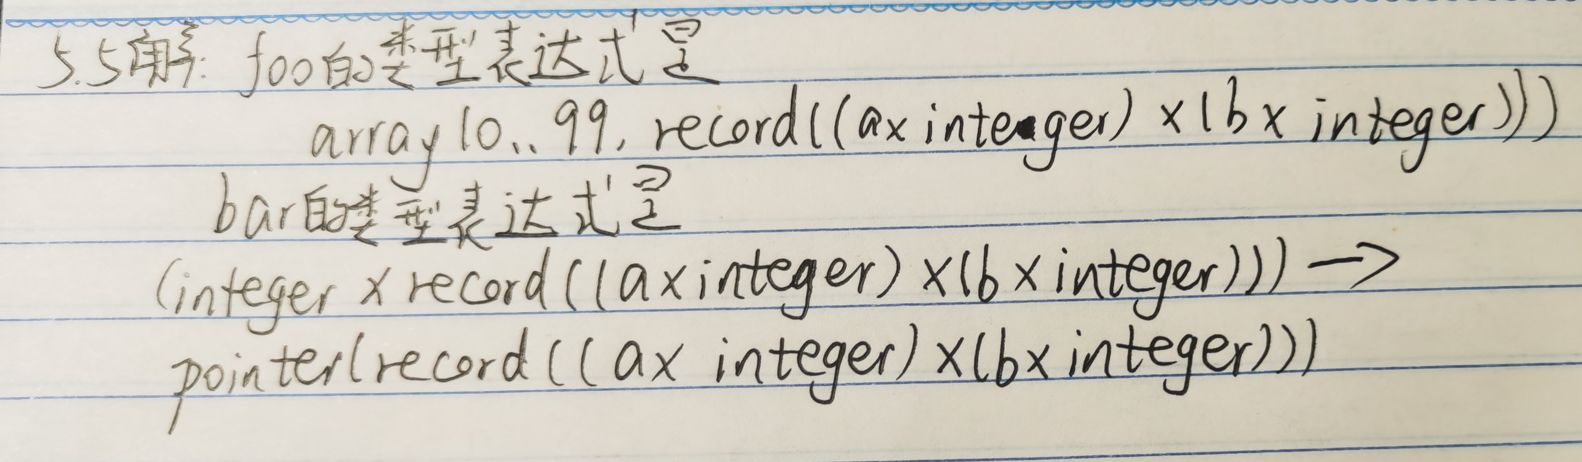 5.5解: foo的类型表达式是
array(0..99, record((a×integer)×(b×integer)))
bar的类型表达式是
(integer×record((a×integer)×(b×integer)))→
pointer(record((a×integer)×(b×integer)))